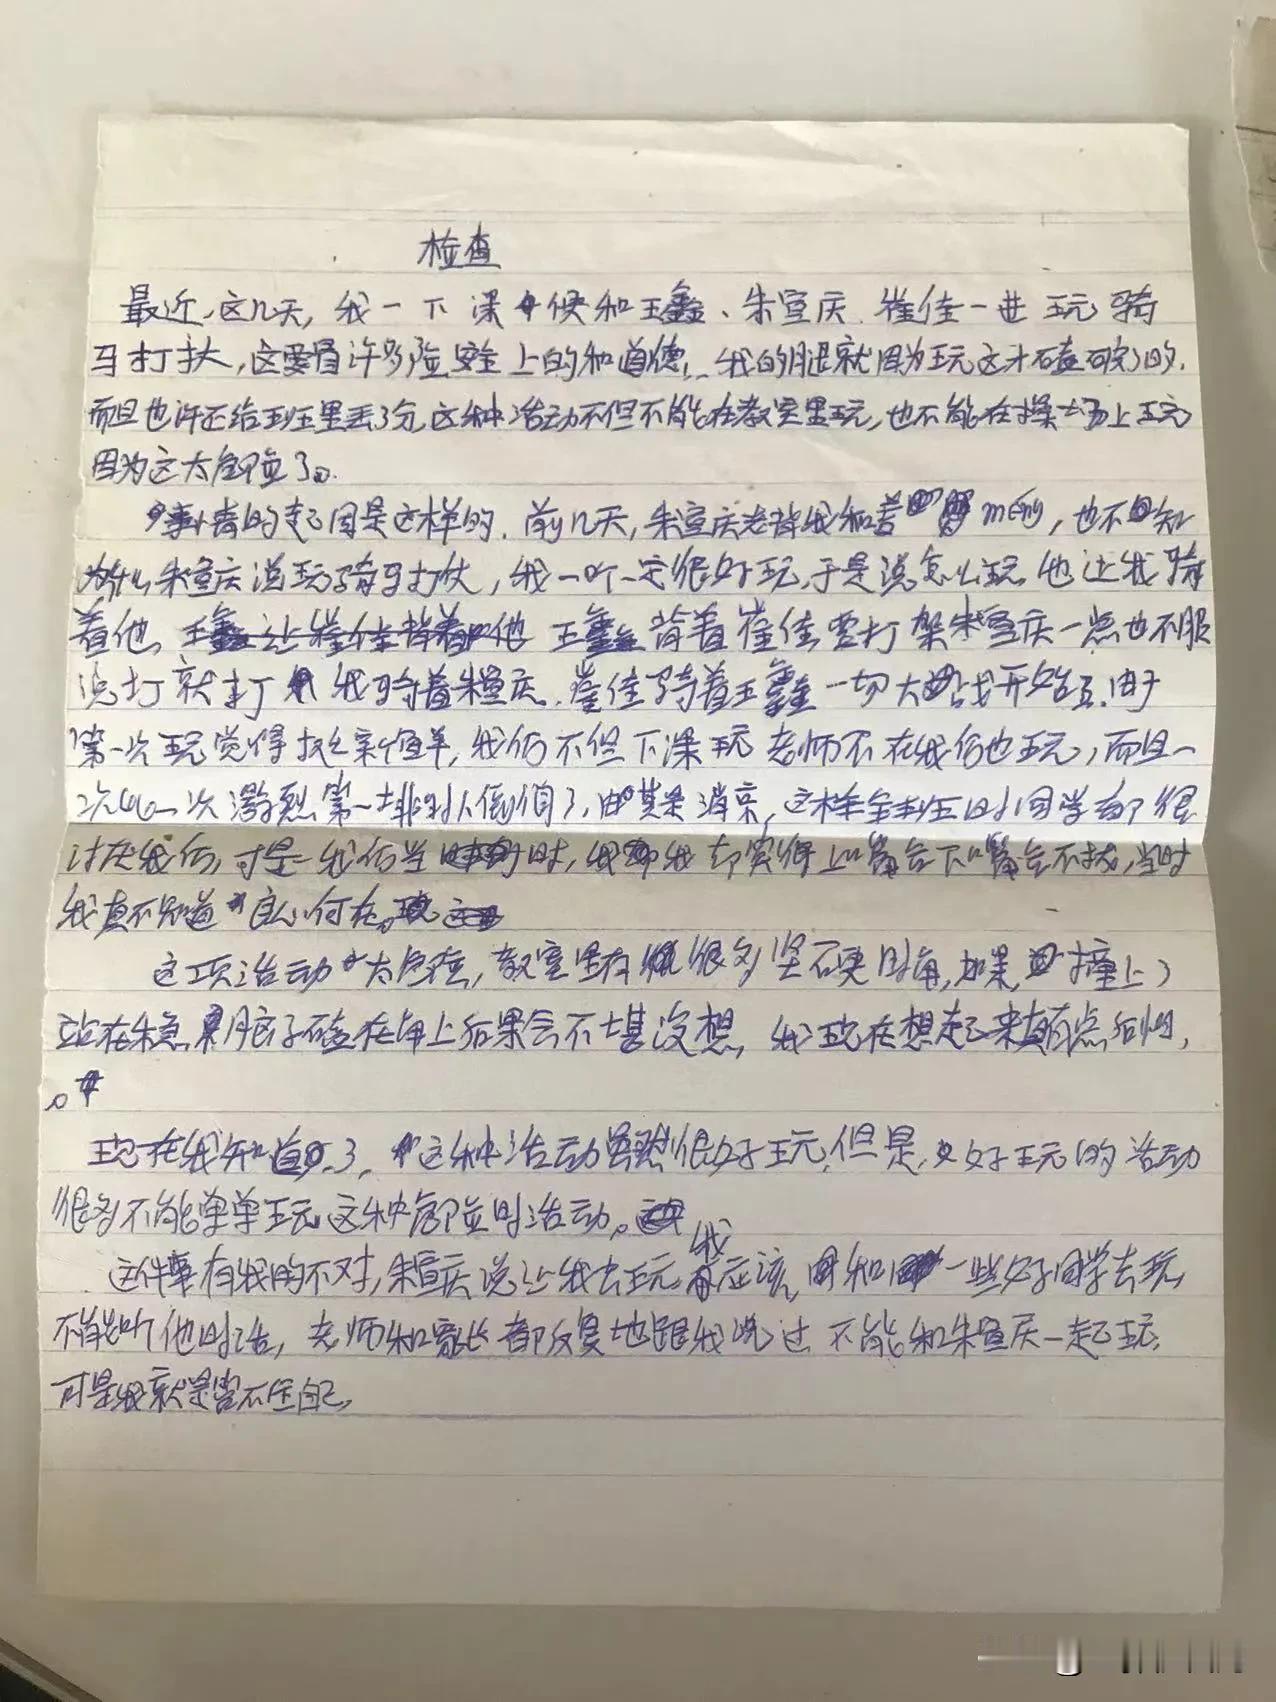 检查
最近,这几天,我一下课候和王鑫、朱宣庆、崔佳一起玩骑
马打扙,这要冒许多险安全上的和道德,我的腿就因为玩这才磕破了的.
而且也许还给班里丢了分,这种活动不但不能在教室里玩,也不能在操场上玩
因为这太危险了。
事情的起因是这样的.前几天,朱宣庆老背我和,也不知
为什么朱宣庆说玩骑马打仗,我一听一定很好玩,于是说怎么玩,他让我骑
着他,王鑫背着崔佳要打架朱宣庆一点也不服
说打就打我骑着朱宣庆.崔佳骑着王鑫一切大战开始了.由于
第一次玩觉得挺新鲜,我们不但下课玩老师不在我们也玩,而且一
次比一次激烈第一排
讨厌我们,可是我们当时,我却觉得
我真不知道良心何在。
这项活动太危险,教室里有很多坚硬的角,如果撞上了
磕在角上后果会不堪没想,我现在想起来真有点后怕,
现在我知道了,这种活动虽然很好玩,但是,好玩的活动
很多不能单单玩这种危险的活动。
这件事有我的不对,朱宣庆说让我去玩我应该和一些好同学去玩
不能听他的话,老师和家长都反复地跟我说过不能和朱宣庆一起玩,
可是我就是管不住自己,